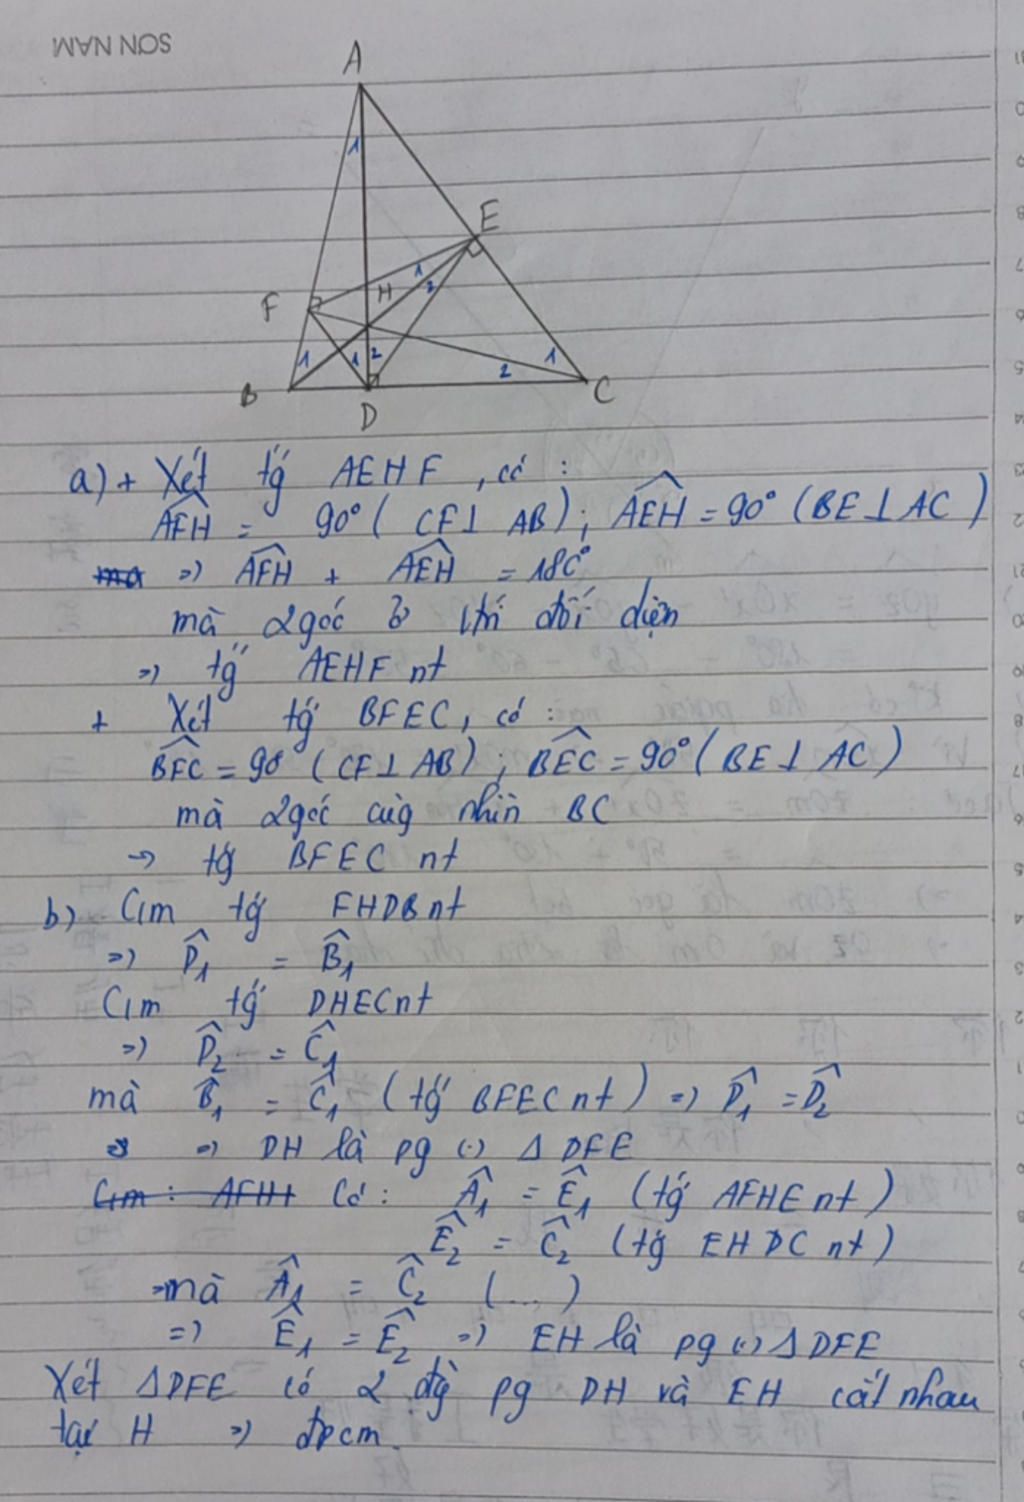 SƠN NAM
A
1
E
F
H
1
2
1
1
2
1
2
B
D
C
a) + Xét tg AEHF, có :
AFH = 90° ( CF ⊥ AB ) ; AEH = 90° ( BE ⊥ AC )
=> AFH + AEH = 180°
mà 2 góc ở vtrí đối diện
=> tg AEHF nt
+ Xét tg BFEC, có :
BFC = 90° ( CF ⊥ AB ) ; BEC = 90° ( BE ⊥ AC )
mà 2 góc cùg nhìn BC
=> tg BFEC nt
b) C/m tg FHDB nt
=> D̂1 = B̂1
C/m tg DHEC nt
=> D̂2 = Ĉ1
mà B̂1 = Ĉ1 ( tg BFEC nt ) => D̂1 = D̂2
=> DH là pg (·) Δ DFE
C/m : AFH Có : Â1 = Ê1 ( tg AFHE nt )
Ê2 = Ĉ2 ( tg EHDC nt )
mà Â1 = Ĉ2 (...)
=> Ê1 = Ê2 => EH là pg (·) Δ DFE
Xét Δ DFE có 2 đg pg DH và EH cắt nhau
tại H => đpcm.